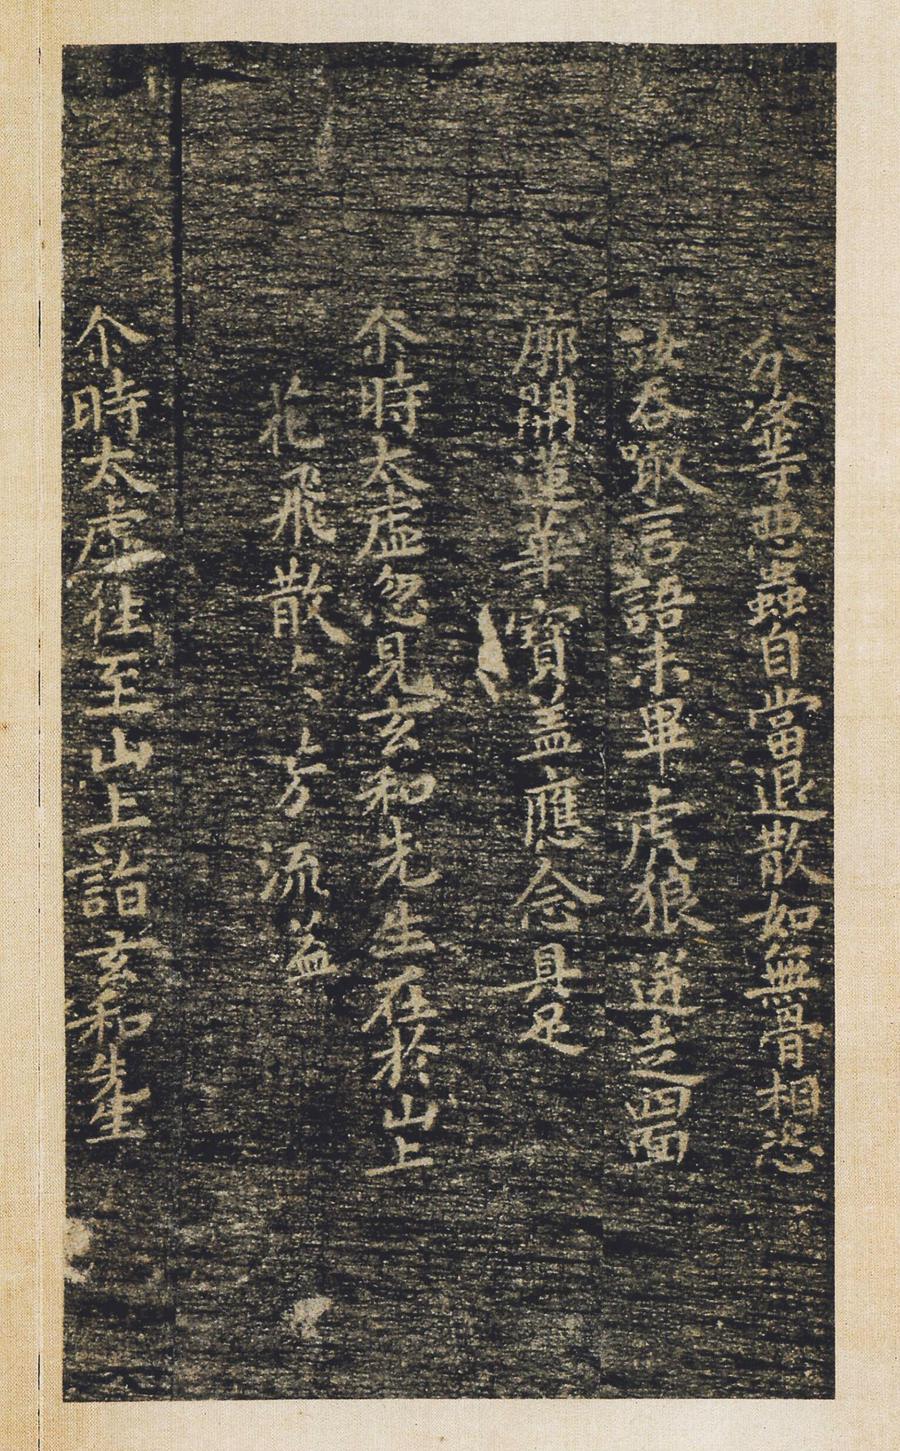 分汝等惡蟲自當退散如無骨相恣
汝吞噉言語未畢虎狼迸走四面
廓開蓮華寶盖應念具足
尒時太虛忽見玄和先生在於山上
花飛散〻芳流益
尒時太虛往至山上詣玄和先生